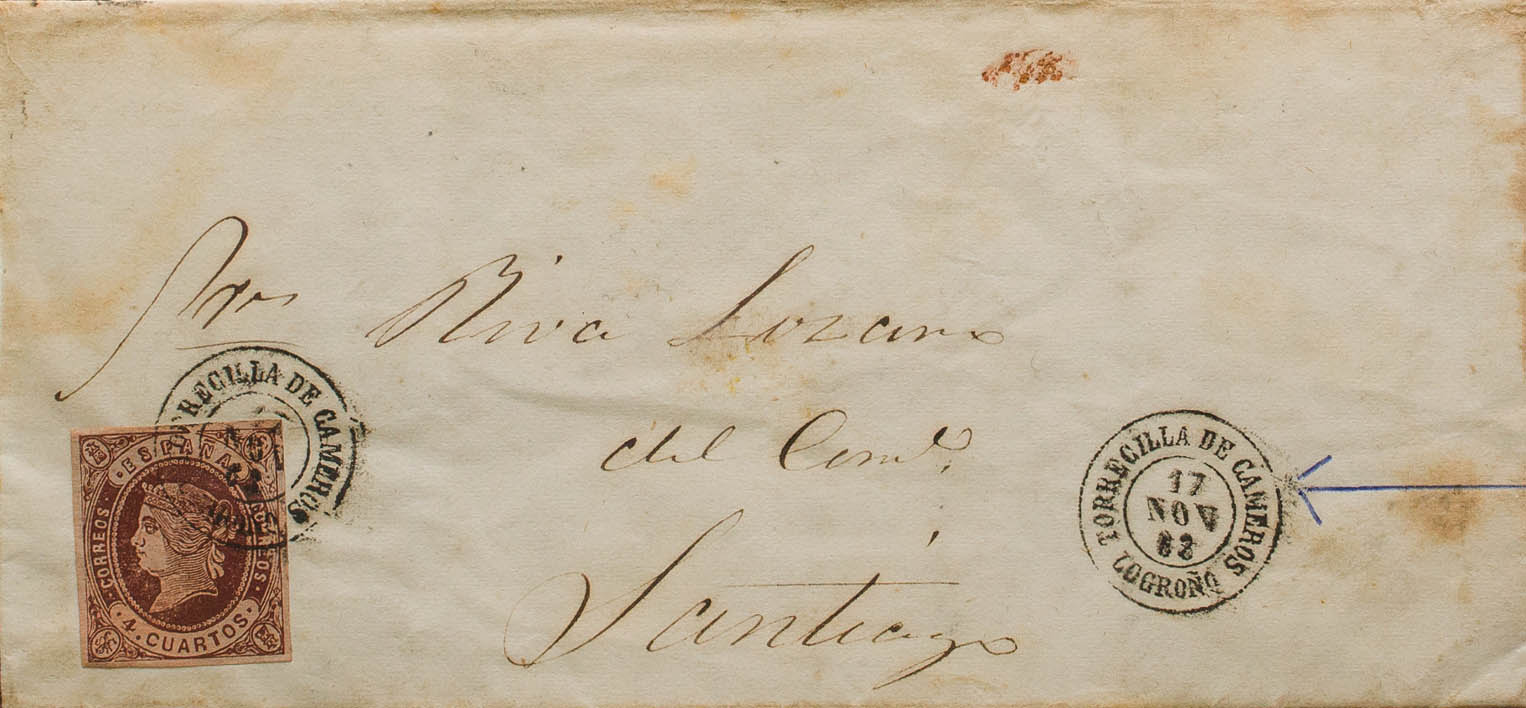 Sres Riva Lozano
del Como.
Santiago
TORRECILLA DE CAMEROS
NOV
CORREOS
ESPAÑA
4. CUARTOS
TORRECILLA DE CAMEROS
17
NOV
62
LOGROÑO